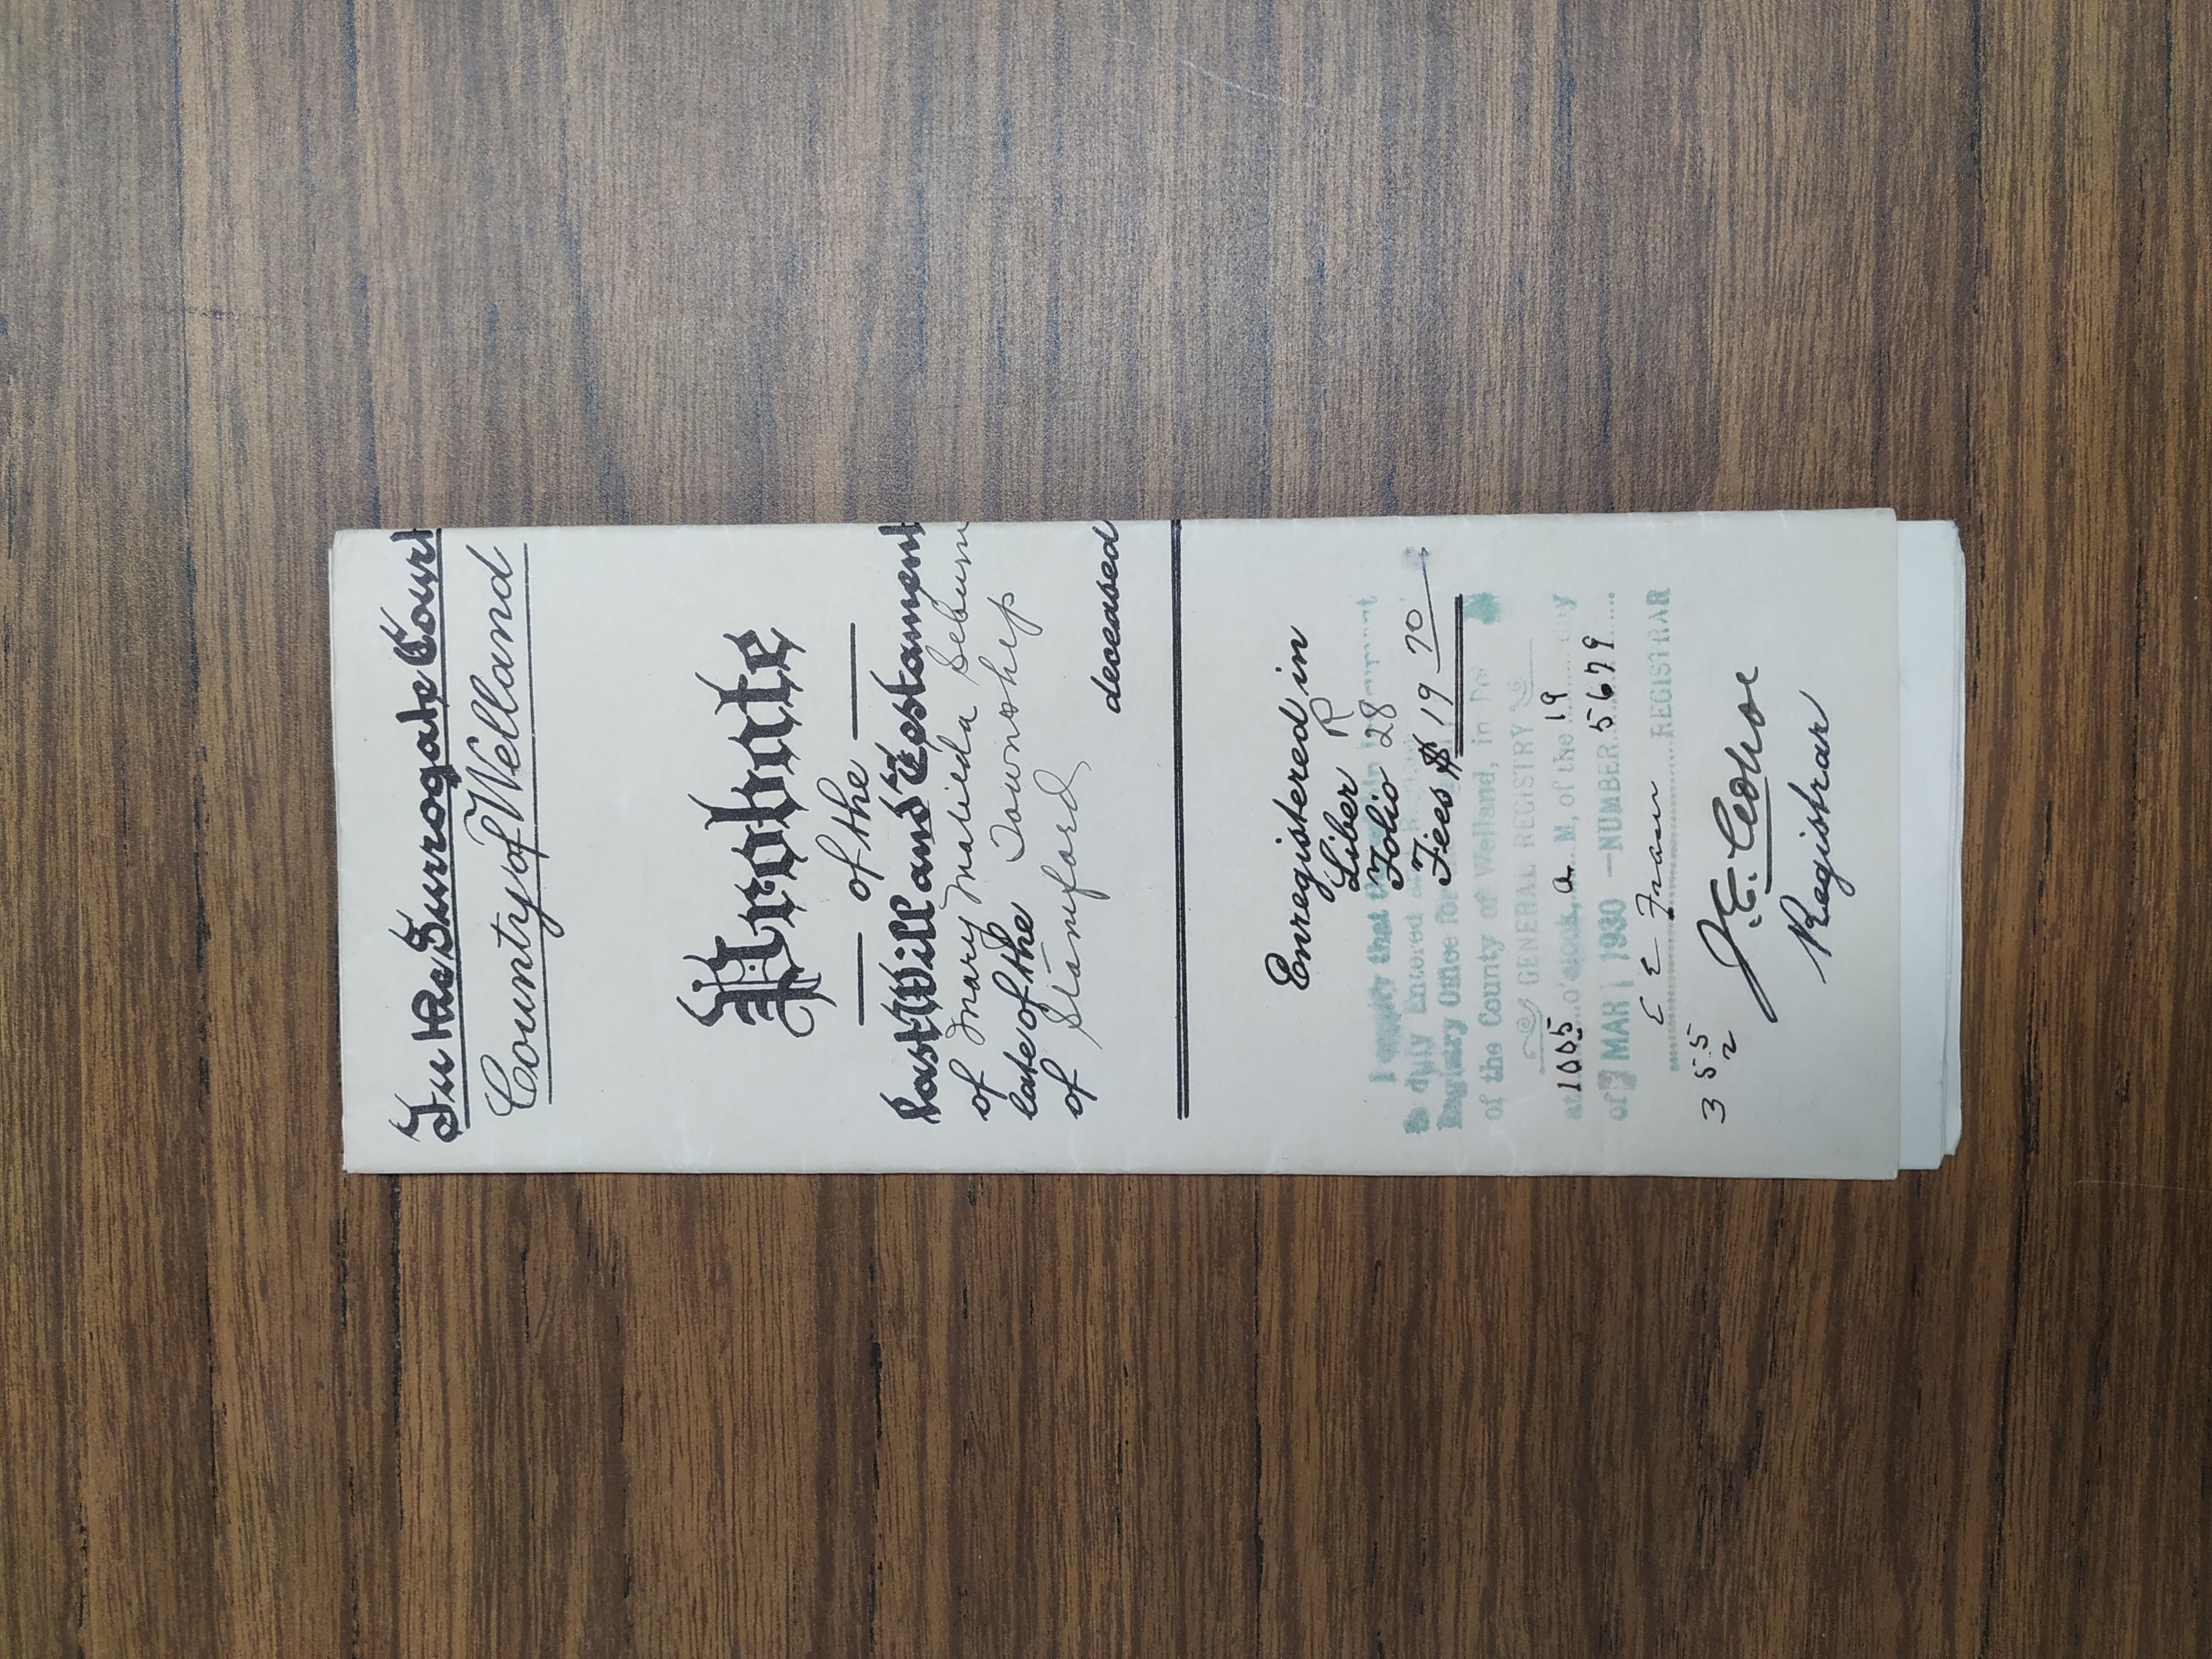 In the Surrogate Court
County of Welland
Probate
— of the —
last Will and Testament
of Mary Matilda
late of the Township
of Stamford
deceased
Enregistered in
Liber R
Folio 28
Fees $ 19 70
I certify that the within Instrument
is duly Entered and
Registry Office for the
of the County of Welland, in
GENERAL REGISTRY
at 1005 o'clock, a M, of the 19 day
of MAR 1930 — NUMBER 5679
REGISTRAR
355
2
Registrar